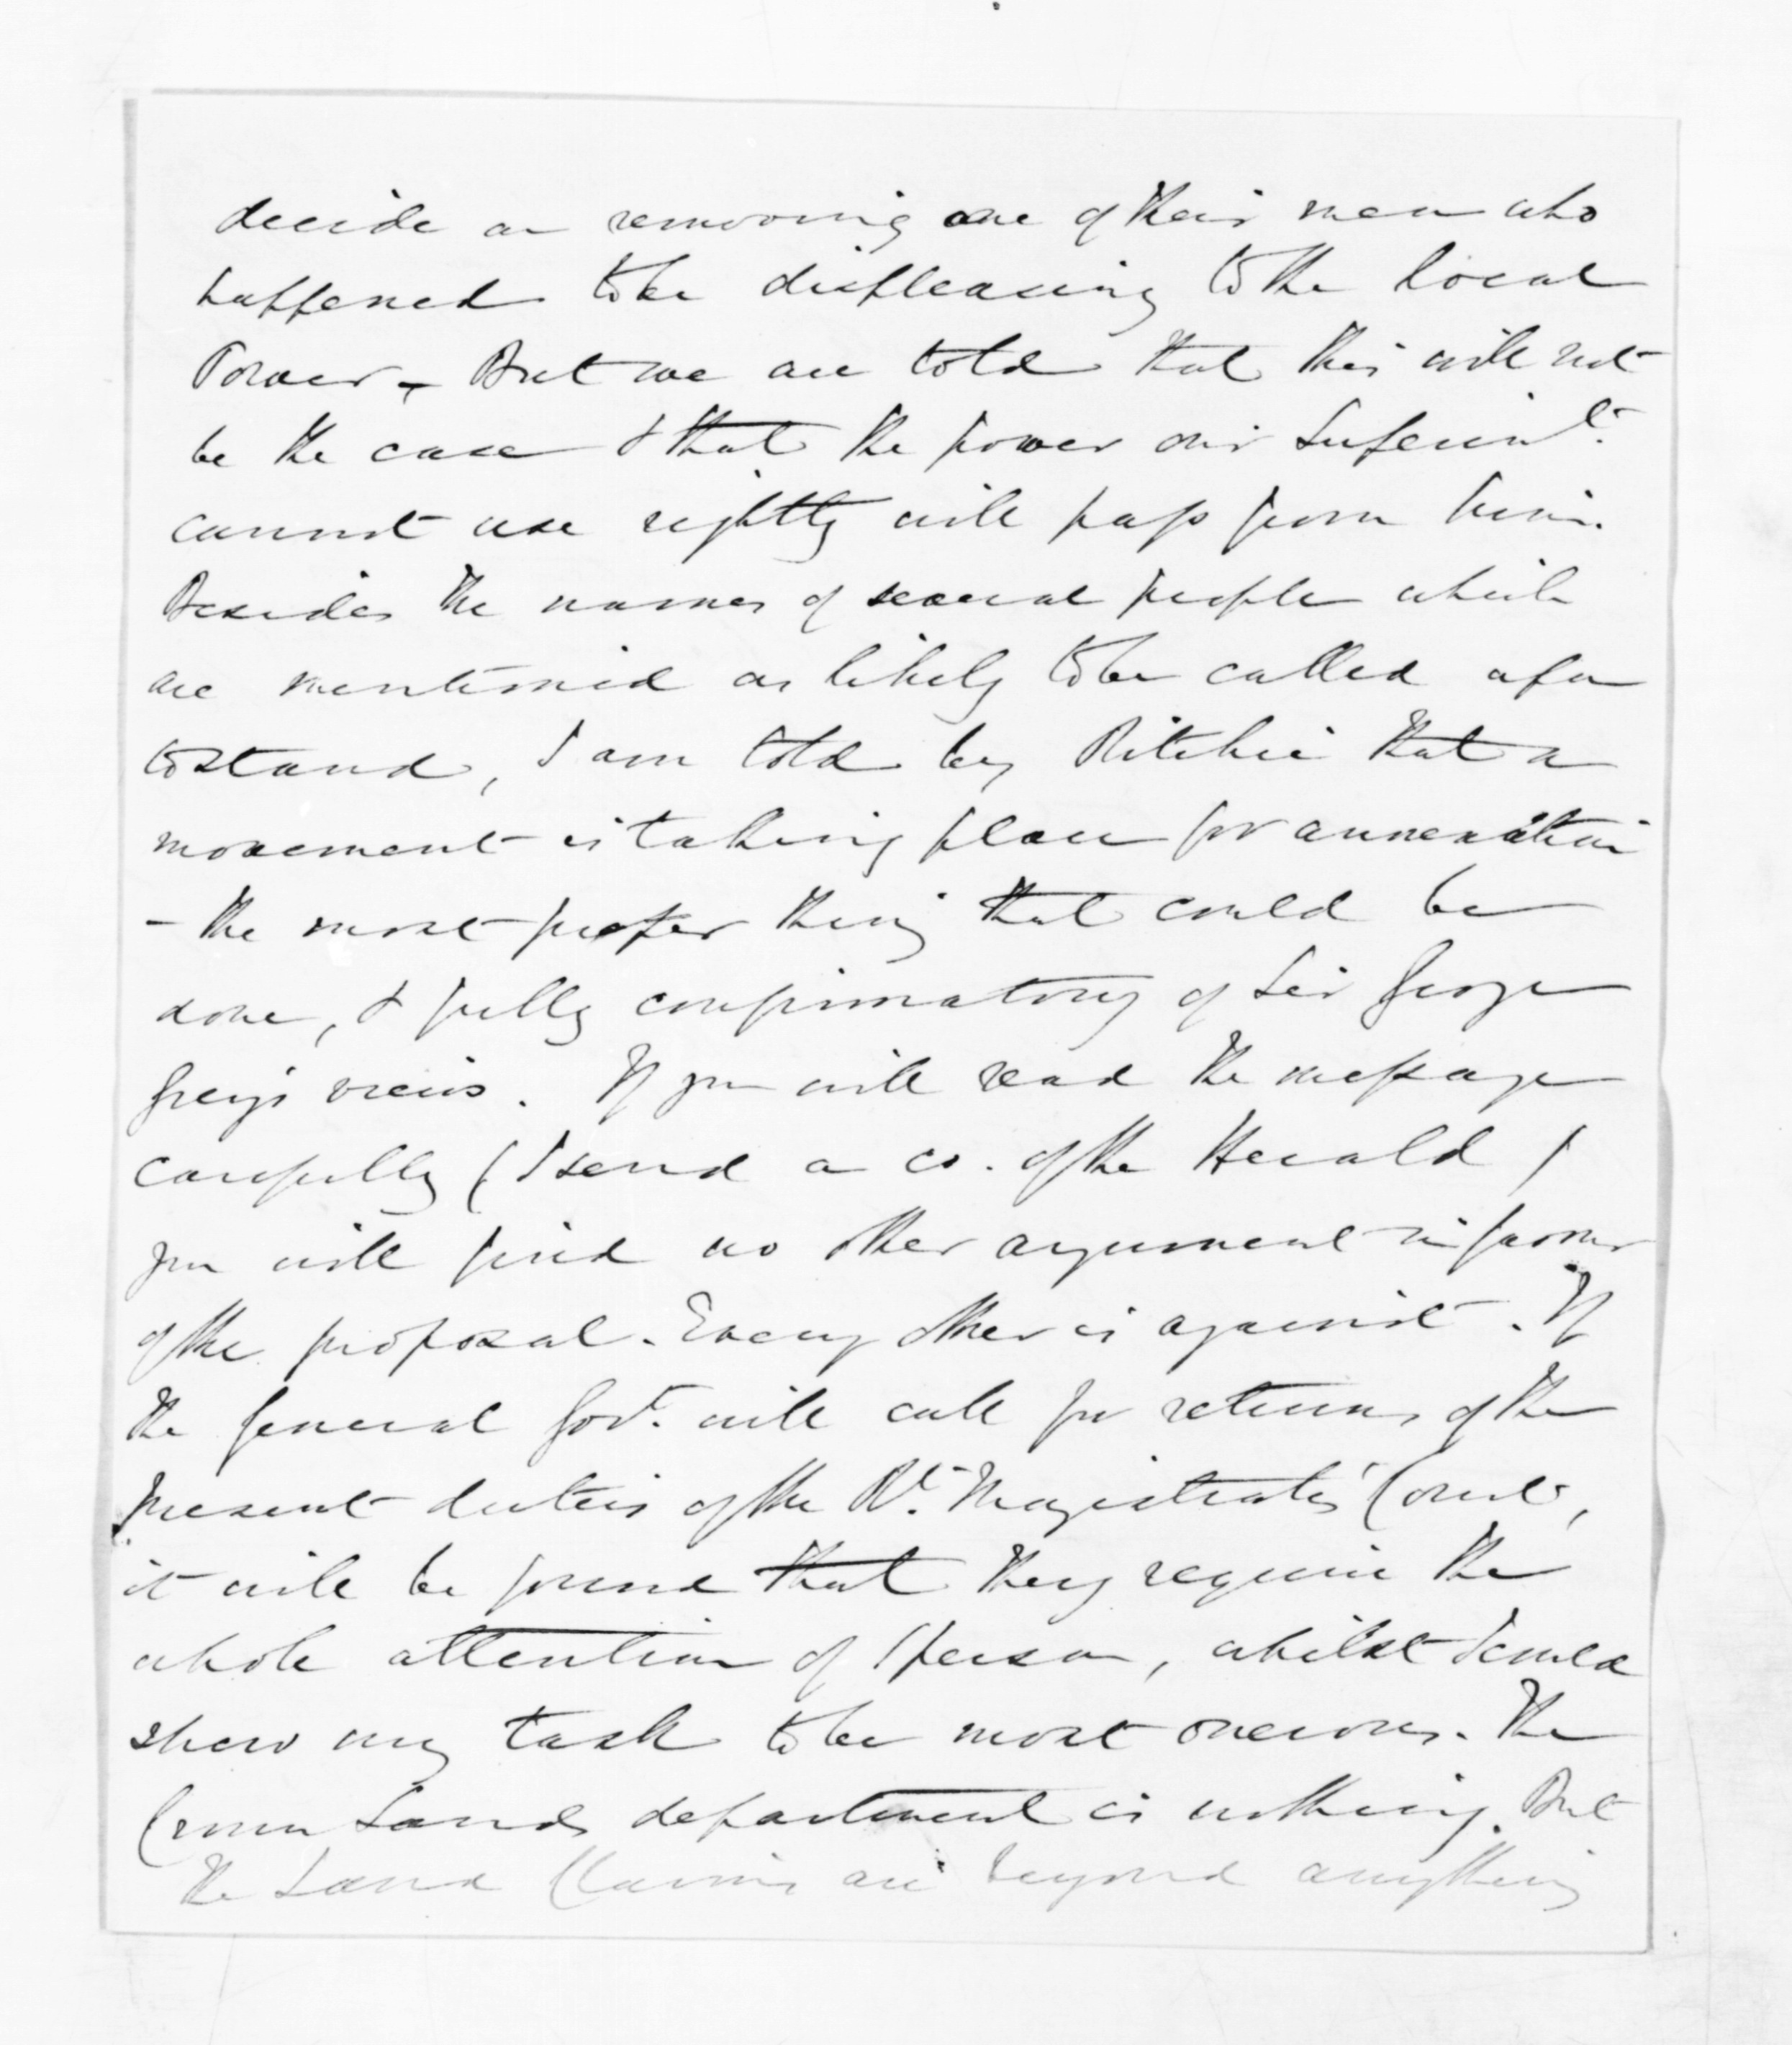 decide on removing one of their men who
happened to be displeasing to the local
Power - But we are told that this will not
be the case & that the power our Superint.
cannot use rightly will pass from him.
Besides the names of several people which
are mentioned as likely to be called upon
to stand, I am told by Ritchie that a
movement is taking place for annexation
- the most proper thing that could be
done, & fully confirmatory of Sir George
Grey's views. If you will read the message
carefully (I send a co. of the Herald)
you will find no other argument in favour
of the proposal. Every other is against. If
the General Govt. will call for returns of the
present duties of the Rt. Magistrates' Court,
it will be found that they require the
whole attention of 1 person, whilst I could
show my task to be most onerous. The
Crown Lands department is nothing. But
the Land Claims are beyond anything